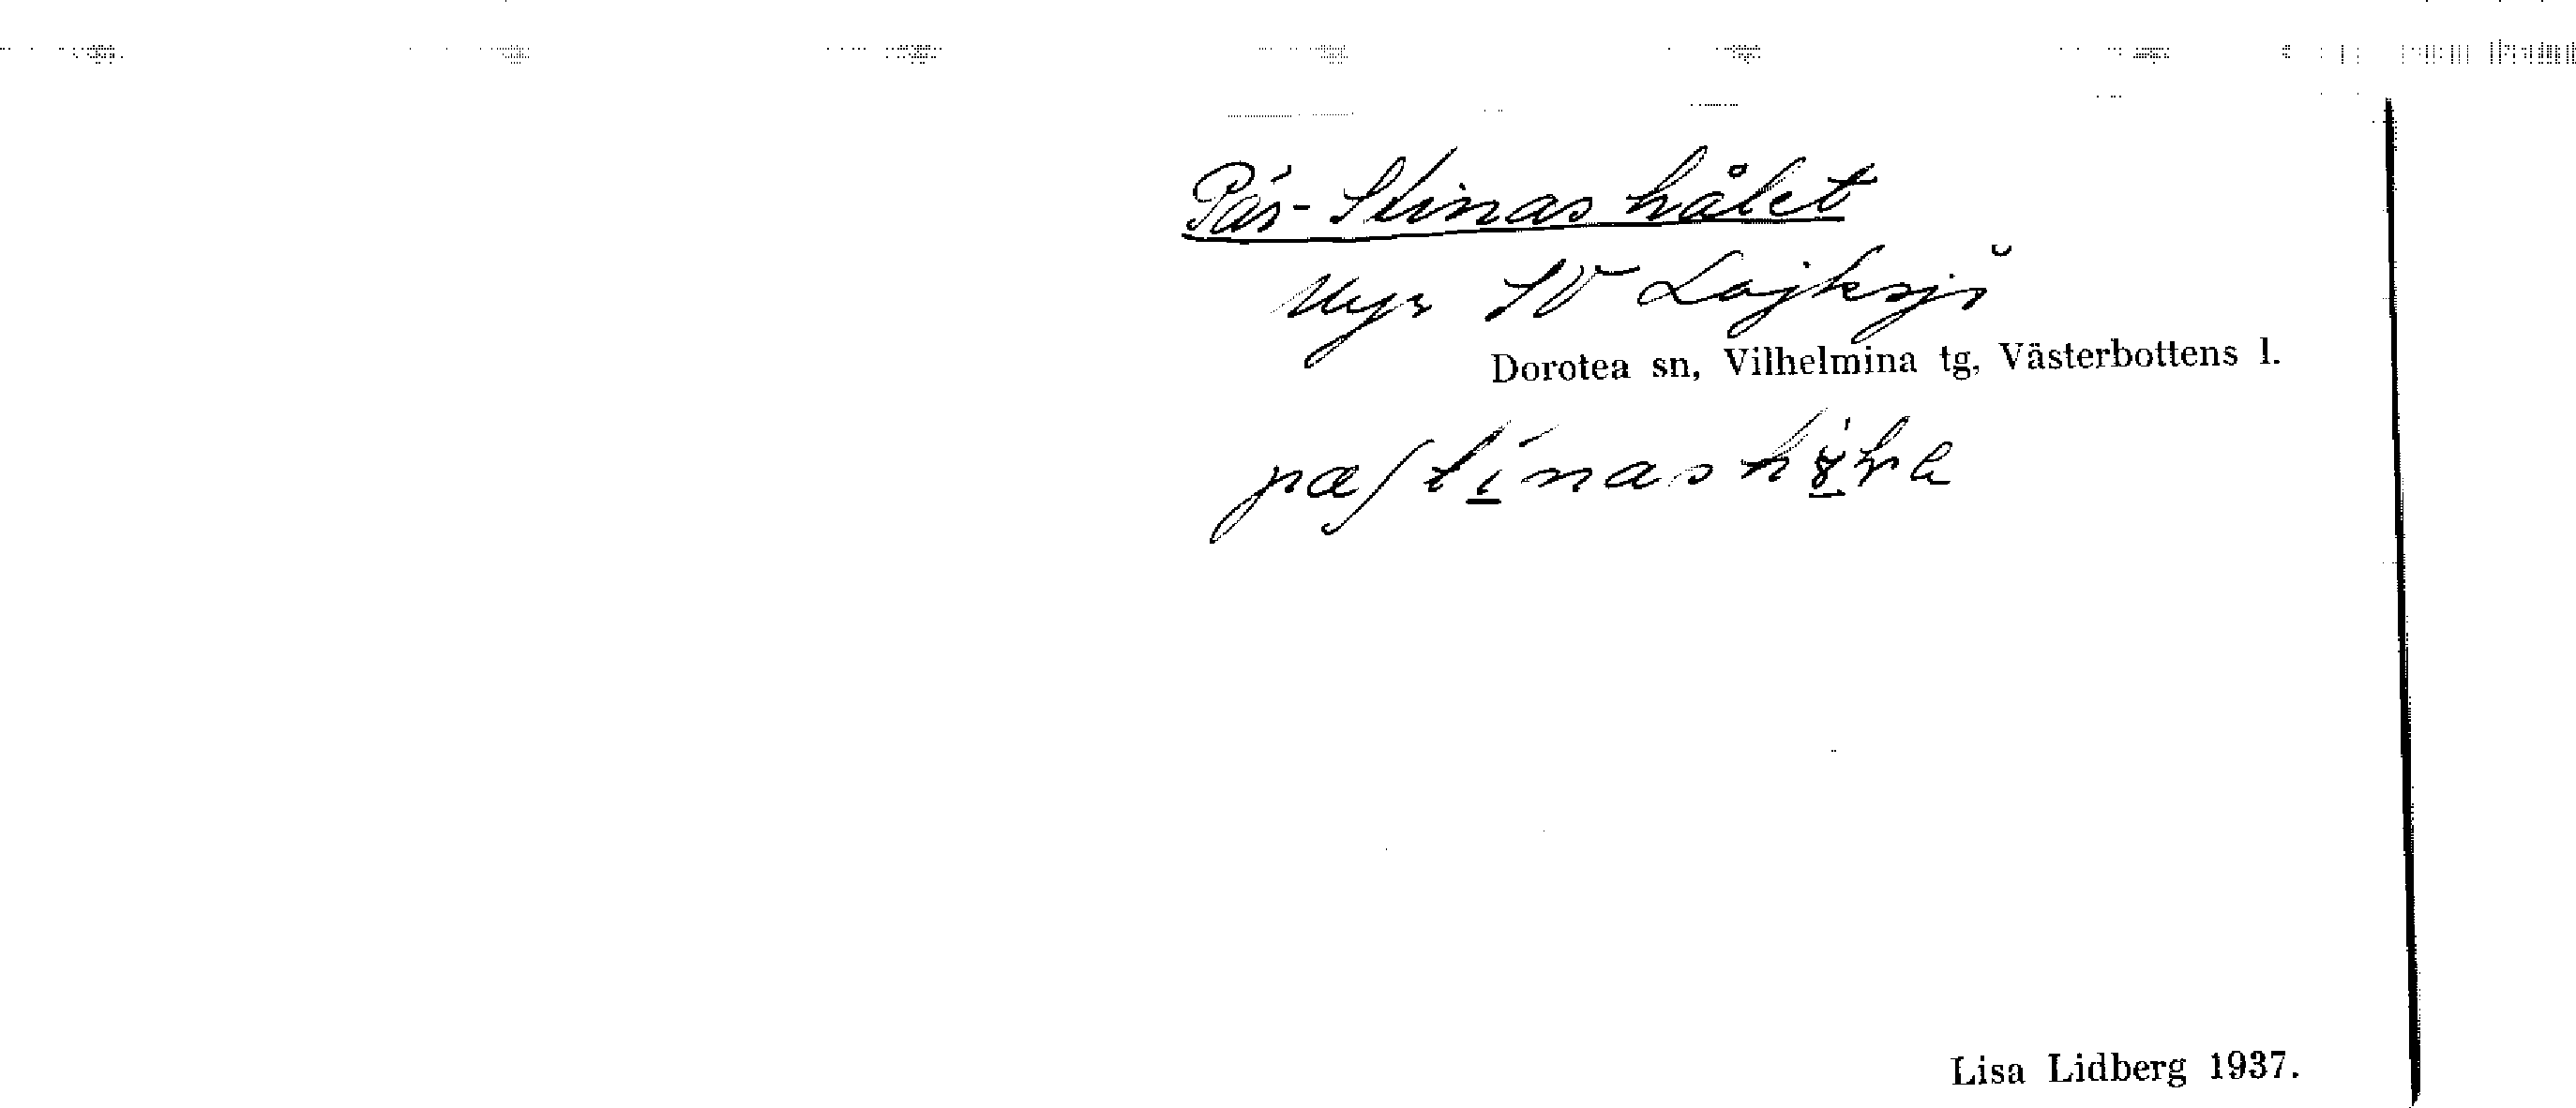 Pås-Stinas hålet
Myr SV Lajksjö
Dorotea sn, Vilhelmina tg, Västerbottens l.
Lisa Lidberg 1937.